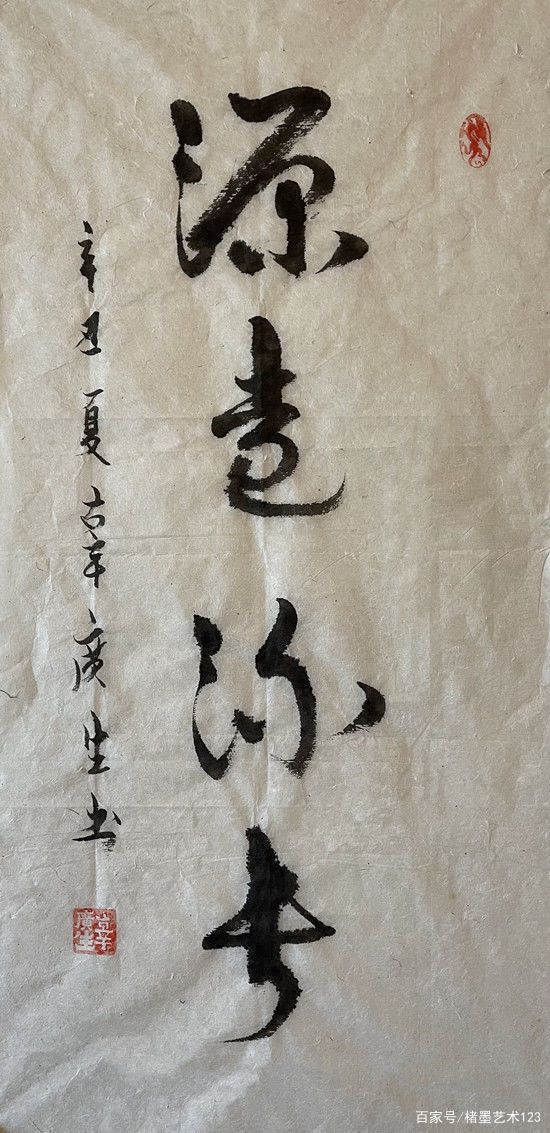 源遠流長
辛丑夏古辛廣生书
百家号/楮墨艺术123